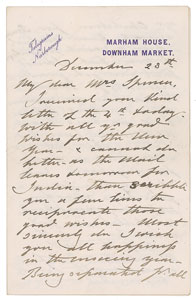 MARHAM HOUSE,
DOWNHAM MARKET.
December 23th
My dear Mrs Spencer,
I received your kind
letter of the 4th today.
With all yr good
wishes for the New
Year I cannot do
better as the Mail
leaves tomorrow for
India - than scribble
you a few lines to
reciprocate those
good wishes - Most
sincerely do I wish
you all happiness
in the ensuing year -
Being separated fr all